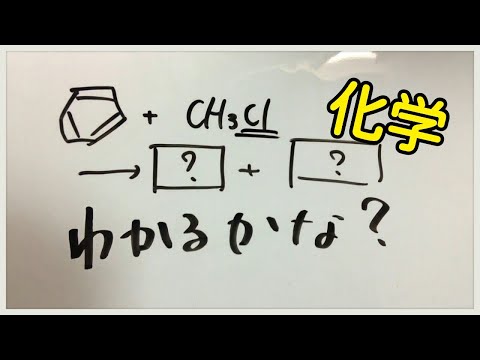 + CH3Cl
化学
→ ? + ?
わかるかな?